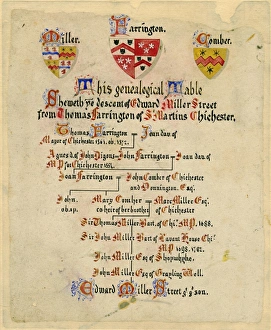 Miller. Farrington. Comber.
This genealogical Table
Sheweth ye descent of Edward Miller Street
from Thomas Farrington of S. Martins Chichester.
Thomas Farrington Joan dau. of
Mayor of Chichester 1541. ob. 1572.
Agnes d. of John Digons John Farrington Joan dau of
MP for Chichester
Joan Farrington John Comber of Chichester
and Donnington. Esq.
John. Mary Comber Marc Miller Esq.
ob. s.p. co heir of her brother of Chichester
Sir Thomas Miller Bart. of Chi. MP. 1688.
Sir John Miller Bart of Lavant House Chi.
MP 1698. 1701.
John Miller Esq of Shopwyke.
John Miller Esq of Grayling Well.
Edward Miller Street g. g. son.